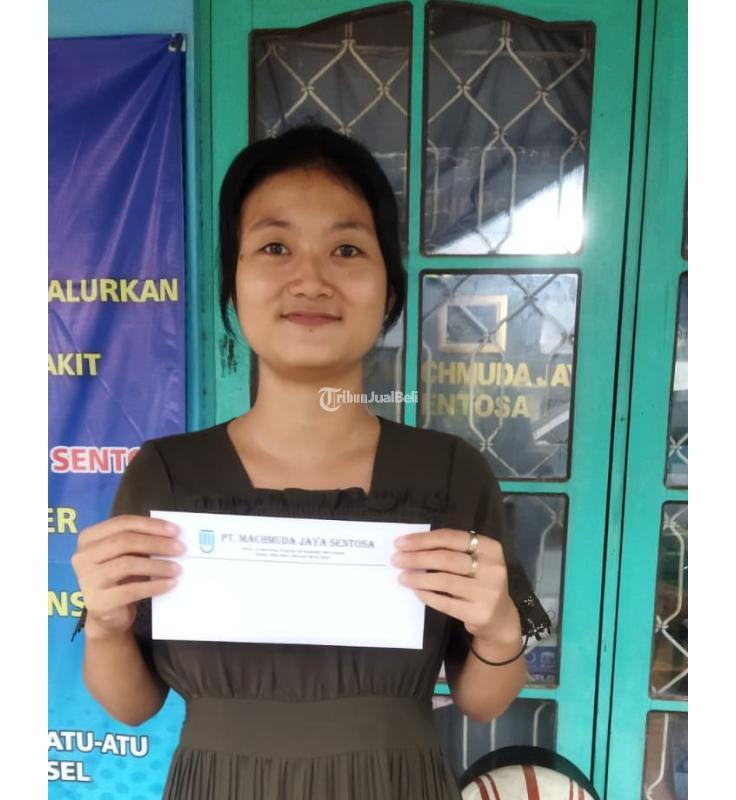 ALURKAN
AKIT
SENTO
ER
NS
ATU-ATU
SEL
TribunJualBeli
CHMUDA JAY
ENTOSA
PT. MACHMUDA JAYA SENTOSA